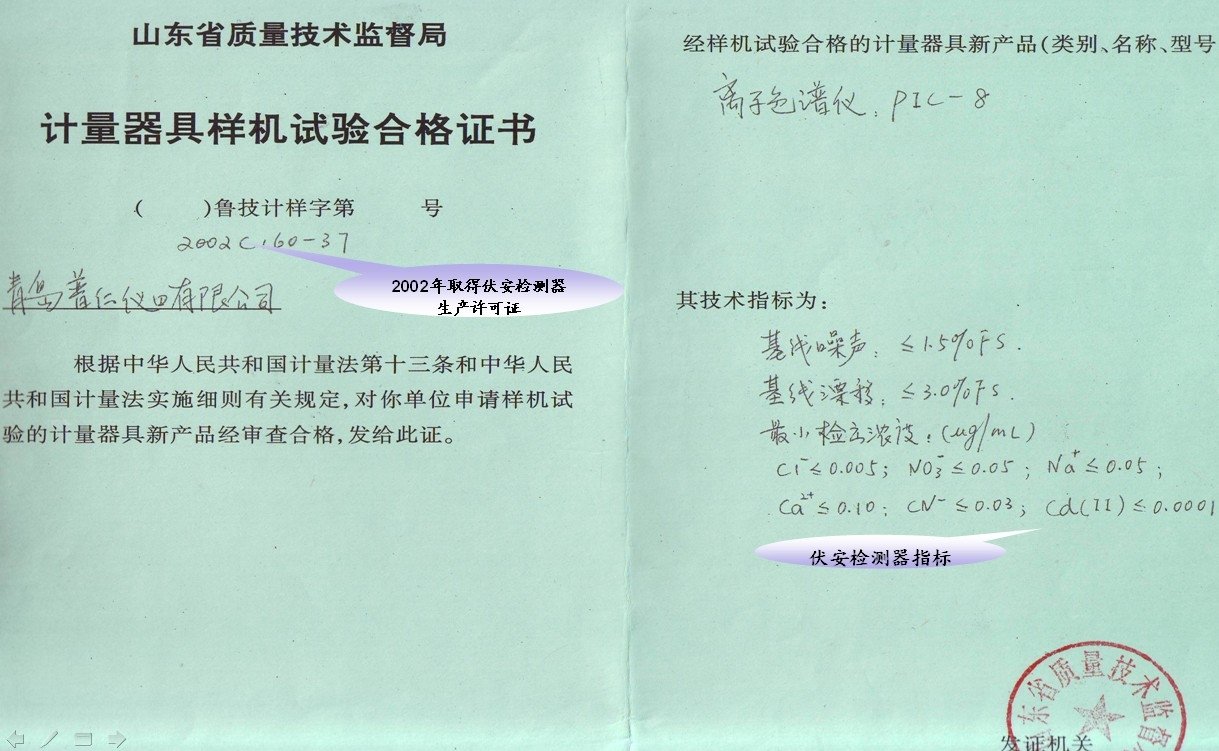 山东省质量技术监督局
计量器具样机试验合格证书
(      )鲁技计样字第      号
2002C160-37
2002年取得伏安检测器
生产许可证
青岛普仁仪田有限公司
根据中华人民共和国计量法第十三条和中华人民
共和国计量法实施细则有关规定,对你单位申请样机试
验的计量器具新产品经审查合格,发给此证。
经样机试验合格的计量器具新产品(类别、名称、型号
离子色谱仪. PIC-8
其技术指标为:
基线噪声: ≤1.5%FS.
基线漂移: ≤3.0%FS.
最小检立浓度: (ug/mL)
Cl⁻≤0.005; NO₃⁻≤0.05; Na⁺≤0.05;
Ca²⁺≤0.10; CN⁻≤0.03; Cd(II)≤0.0001
伏安检测器指标
东省质量技术监督
发证机关